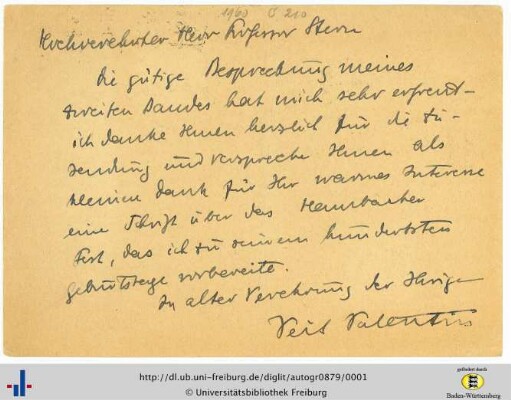 1960 C 210
Hochverehrter Herr Professor Stern
Die gütige Besprechung meines
zweiten Bandes hat mich sehr erfreut -
ich danke Ihnen herzlich für die Zu-
sendung und verspreche Ihnen als
kleinen Dank für Ihr warmes Interesse
eine Schrift über das Hambacher
Fest, das ich zu seinem hundertsten
Geburtstage vorbereite.
In alter Verehrung der Ihrige
Veit Valentin
http://dl.ub.uni-freiburg.de/diglit/autogr0879/0001
© Universitätsbibliothek Freiburg
gefördert durch
Baden-Württemberg